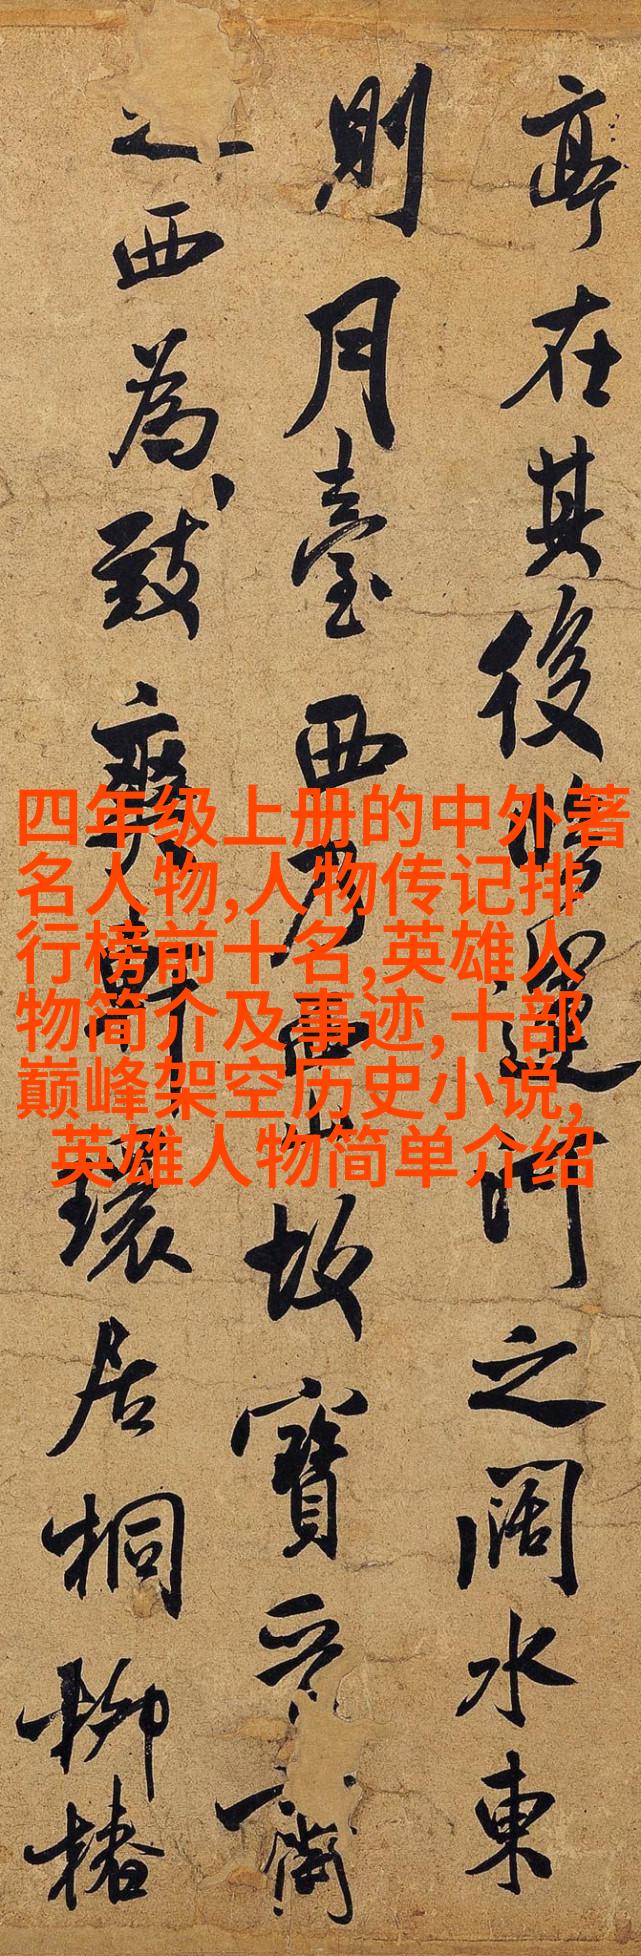 亭在其後臨運河之闊水東
則月臺西乃西山故寶晉斎
之西為致爽軒環居桐柳椿
四年级上册的中外著
名人物,人物传记排
行榜前十名,英雄人
物简介及事迹,十部
巅峰架空历史小说,
英雄人物简单介绍